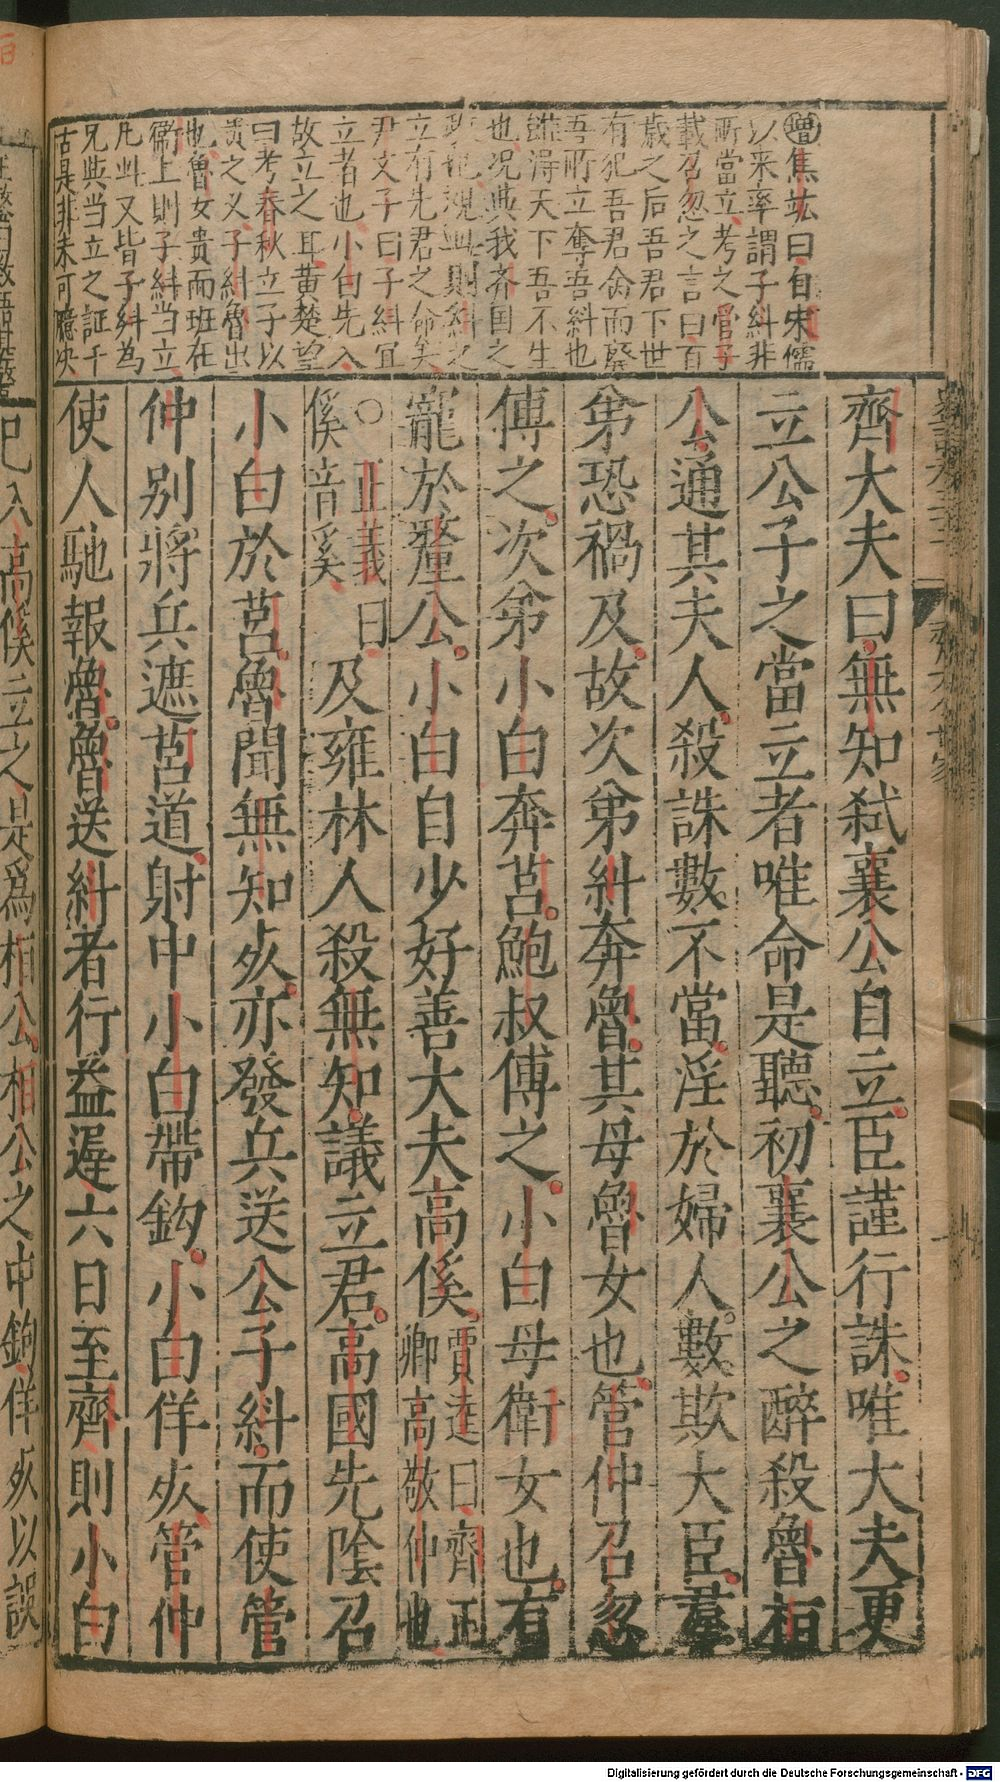 增焦竑曰自宋儒
以来率謂子糾非
所當立考之管子
載召忽之言曰百
歲之后吾君下世
有犯吾君命而廢
吾所立奪吾糾也
雖得天下吾不生
也况與我齐国之
政也况此則糾之
立有先君之命矣
尹文子曰子糾宜
立者也小白先入
故立之耳黄楚望
曰考春秋立子以
贵之义子糾魯出
也魯女贵而班在
衛上則子糾当立
凡此又皆子糾為
兄與当立之証千
古是非未可臆决
齊大夫曰無知弑襄公自立臣謹行誅唯大夫更
立公子之當立者唯命是聽初襄公之醉殺魯桓
公通其夫人殺誅數不當淫於婦人數欺大臣羣
弟恐禍及故次弟糾奔魯其母魯女也管仲召忽
傅之次弟小白奔莒鮑叔傅之小白母衛女也有
寵於釐公小白自少好善大夫高傒賈逵曰齊正卿高敬仲也
○正義曰傒音奚及雍林人殺無知議立君高國先陰召
小白於莒魯聞無知死亦發兵送公子糾而使管
仲别將兵遮莒道射中小白帶鈎小白佯死管仲
使人馳報魯魯送糾者行益遲六日至齊則小白
巳入高傒立之是爲桓公桓公之中鉤佯死以誤
Digitalisierung gefördert durch die Deutsche Forschungsgemeinschaft - DFG